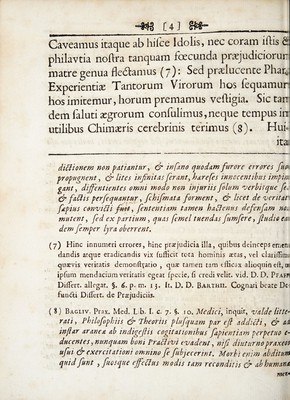 [4]
Caveamus itaque ab hiſce Idolis, nec coram iſtis &
philavtia noſtra tanquam fœcunda præjudiciorum
matre genua flectamus (7): Sed prælucente
Experientiæ Tantorum Virorum hos ſequamur
hos imitemur, horum premamus veſtigia. Sic
dem ſaluti ægrorum conſulimus, neque tempus in
utilibus Chimæris cerebrinis terimus (8). Hui-
dictionem non patiantur, & inſano quodam furore errores ſuos
propugnent, & lites infinitas ſerant, hæreſes innocentibus
gant, diſſentientes omni modo non injuriis ſolum verbisque
& factis perſequantur, ſchiſmata forment, & licet de veritate
ſæpius convicti ſunt, ſententiam tamen hactenus defenſam non
mutent, ſed ex partium, quas ſemel tuendas ſumſere, ſtudio
dem ſemper lyra oberrent.
(7) Hinc innumeri errores, hinc præjudicia illa, quibus deinceps
dandis atque eradicandis vix ſufficit tota hominis ætas, vel clariſſima
quævis veritatis demonſtratio, quæ tamen tam efficax alioquin eſt, ut
ipſum mendacium veritatis egeat ſpecie, ſi credi velit. vid. D. D.
Diſſert. allegat. §. 6. p. m. 13. It. D. D. BARTHII. Cognati beate De-
functi Diſſert. de Præjudiciis.
(8) BAGLIV. Prax. Med. Lib. I. c. 7. §. 10. Medici, inquit, valde litte-
rati, Philoſophiis & Theoriis plusquam par eſt addicti, &
inſtar araneæ ab indigeſtis cogitationibus ſapientiam perpetuo e-
ducentes, nunquam boni Practici evadent, niſi diuturno praxeos
uſus & exercitationi omnino ſe ſubjecerint. Morbi enim abditum
quid ſunt, ſuosque effectus modis tam reconditis & ab humana